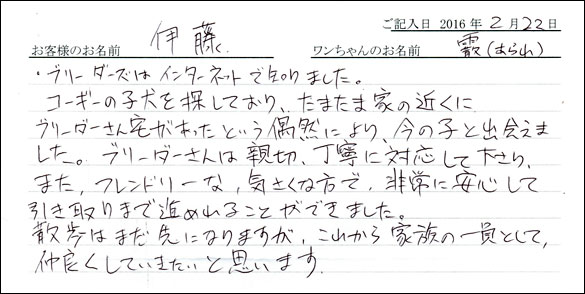 ご記入日 2016年2月22日
お客様のお名前 伊藤 ワンちゃんのお名前 霰(あられ)
・ブリーダーズはインターネットで知りました。
コーギーの子犬を探しており、たまたま家の近くに
ブリーダーさん宅があったという偶然により、今の子と出会えま
した。ブリーダーさんは親切、丁寧に対応して下さり、
また、フレンドリーな、気さくな方で、非常に安心して
引き取りまで進めれることができました。
散歩はまだ先になりますが、これから家族の一員として、
仲良くしていきたいと思います。